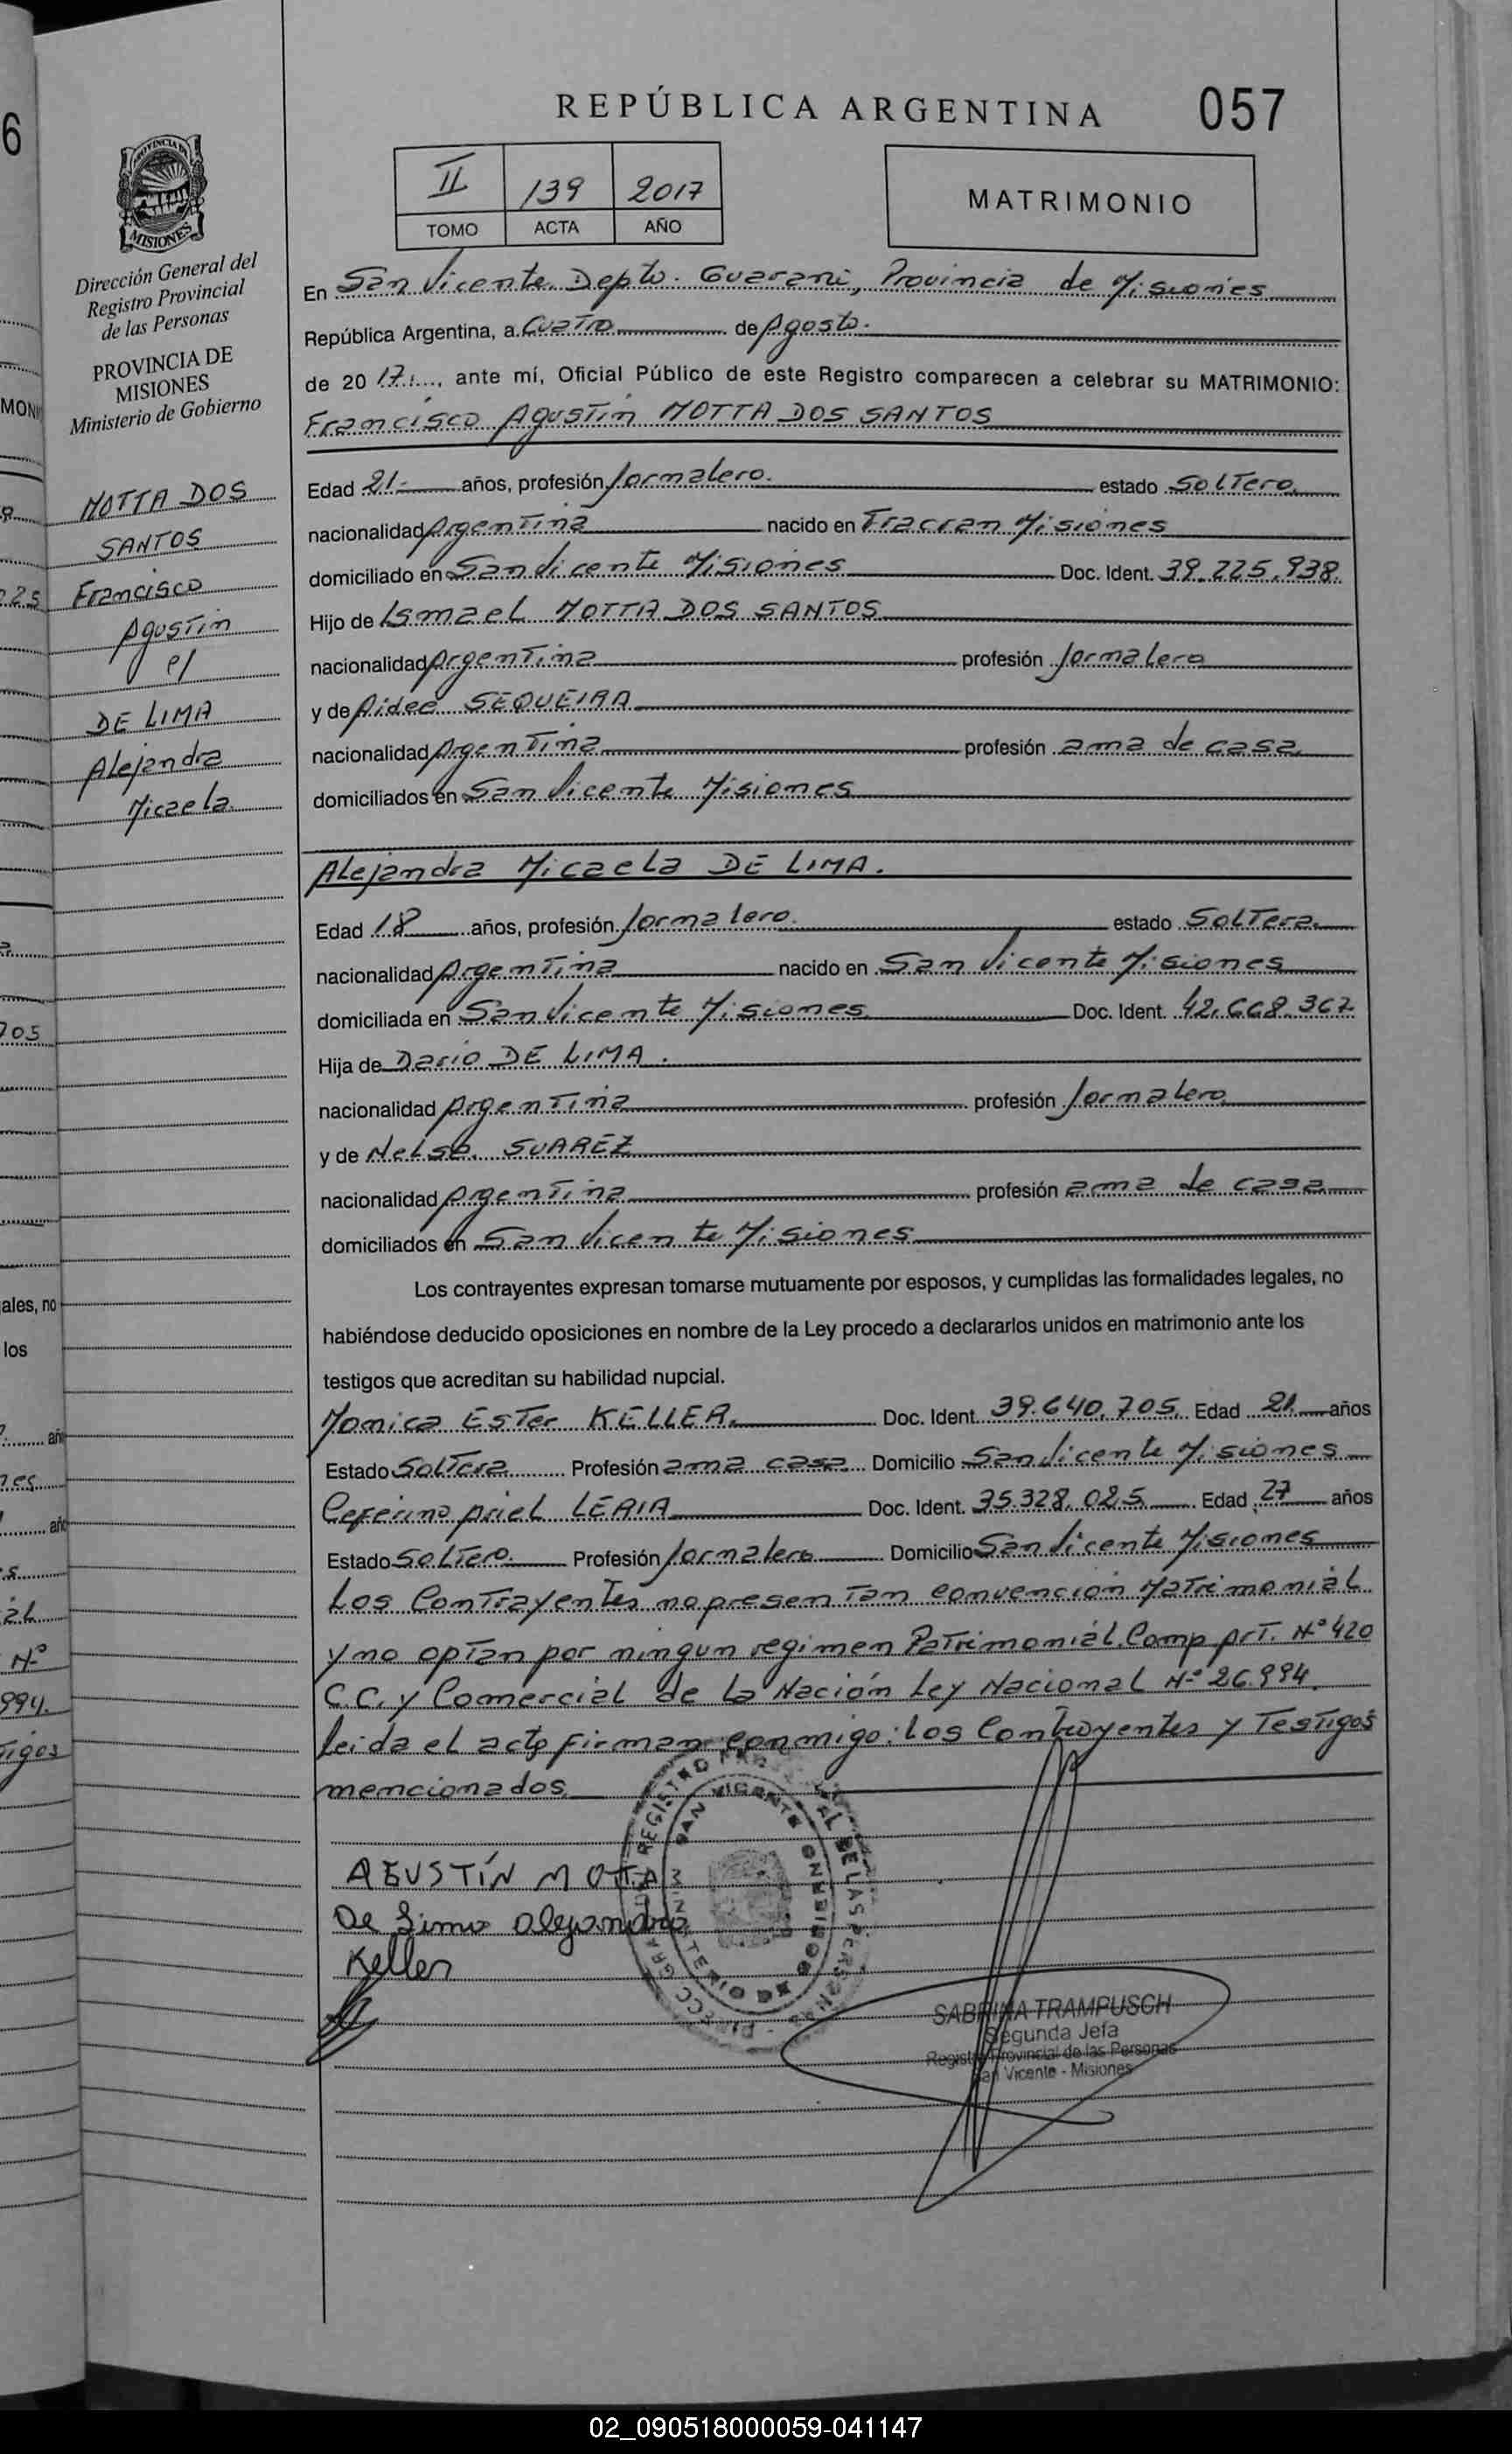 REPÚBLICA ARGENTINA 057
6
PROVINCIA DE
MISIONES
II 139 2017
TOMO ACTA AÑO
MATRIMONIO
Dirección General del
Registro Provincial
de las Personas
PROVINCIA DE
MISIONES
Ministerio de Gobierno
MOTTA DOS
SANTOS
Francisco
Agustin
c/
DE LIMA
Alejandra
Micaela
En San Vicente Depto. Guarani, Provincia de Misiones
República Argentina, a Cuatro de Agosto.
de 2017, ante mí, Oficial Público de este Registro comparecen a celebrar su MATRIMONIO:
Francisco Agustin MOTTA DOS SANTOS
Edad 21- años, profesión Jornalero. estado Soltero.
nacionalidad Argentina nacido en Fracran Misiones
domiciliado en San Vicente Misiones Doc. Ident. 39.225.938.
Hijo de Ismael MOTTA DOS SANTOS
nacionalidad Argentina profesión Jornalero
y de Aidee SEQUEIRA
nacionalidad Argentina profesión ama de casa.
domiciliados en San Vicente Misiones
Alejandra Micaela DE LIMA.
Edad 18 años, profesión Jornalero. estado Soltera.
nacionalidad Argentina nacido en San Vicente Misiones
domiciliada en San Vicente Misiones Doc. Ident. 42.668.367
Hija de Dario DE LIMA.
nacionalidad Argentina profesión Jornalero
y de Nelsa SUAREZ
nacionalidad Argentina profesión ama de casa
domiciliados en San Vicente Misiones
Los contrayentes expresan tomarse mutuamente por esposos, y cumplidas las formalidades legales, no
habiéndose deducido oposiciones en nombre de la Ley procedo a declararlos unidos en matrimonio ante los
testigos que acreditan su habilidad nupcial.
Monica Ester KELLER. Doc. Ident. 39.640.705. Edad 21. años
Estado Soltera Profesión ama casa Domicilio San Vicente Misiones
Ceferino Ariel LERIA Doc. Ident. 35.328.025 Edad 27 años
Estado Soltero. Profesión Jornalero Domicilio San Vicente Misiones
Los Contrayentes no presentan convención Matrimonial
y no optan por ningun regimen Patrimonial. Comp. Art. N° 420
C.C. y Comercial de la Nación Ley Nacional N° 26.994.
leida el acto firman conmigo: los Contrayentes y Testigos
mencionados.
AGUSTÍN MOTTA
De Lima Alejandra
Keller
SABRINA TRAMPUSCH
Segunda Jefa
Registro Provincial de las Personas
San Vicente - Misiones
02_090518000059-041147